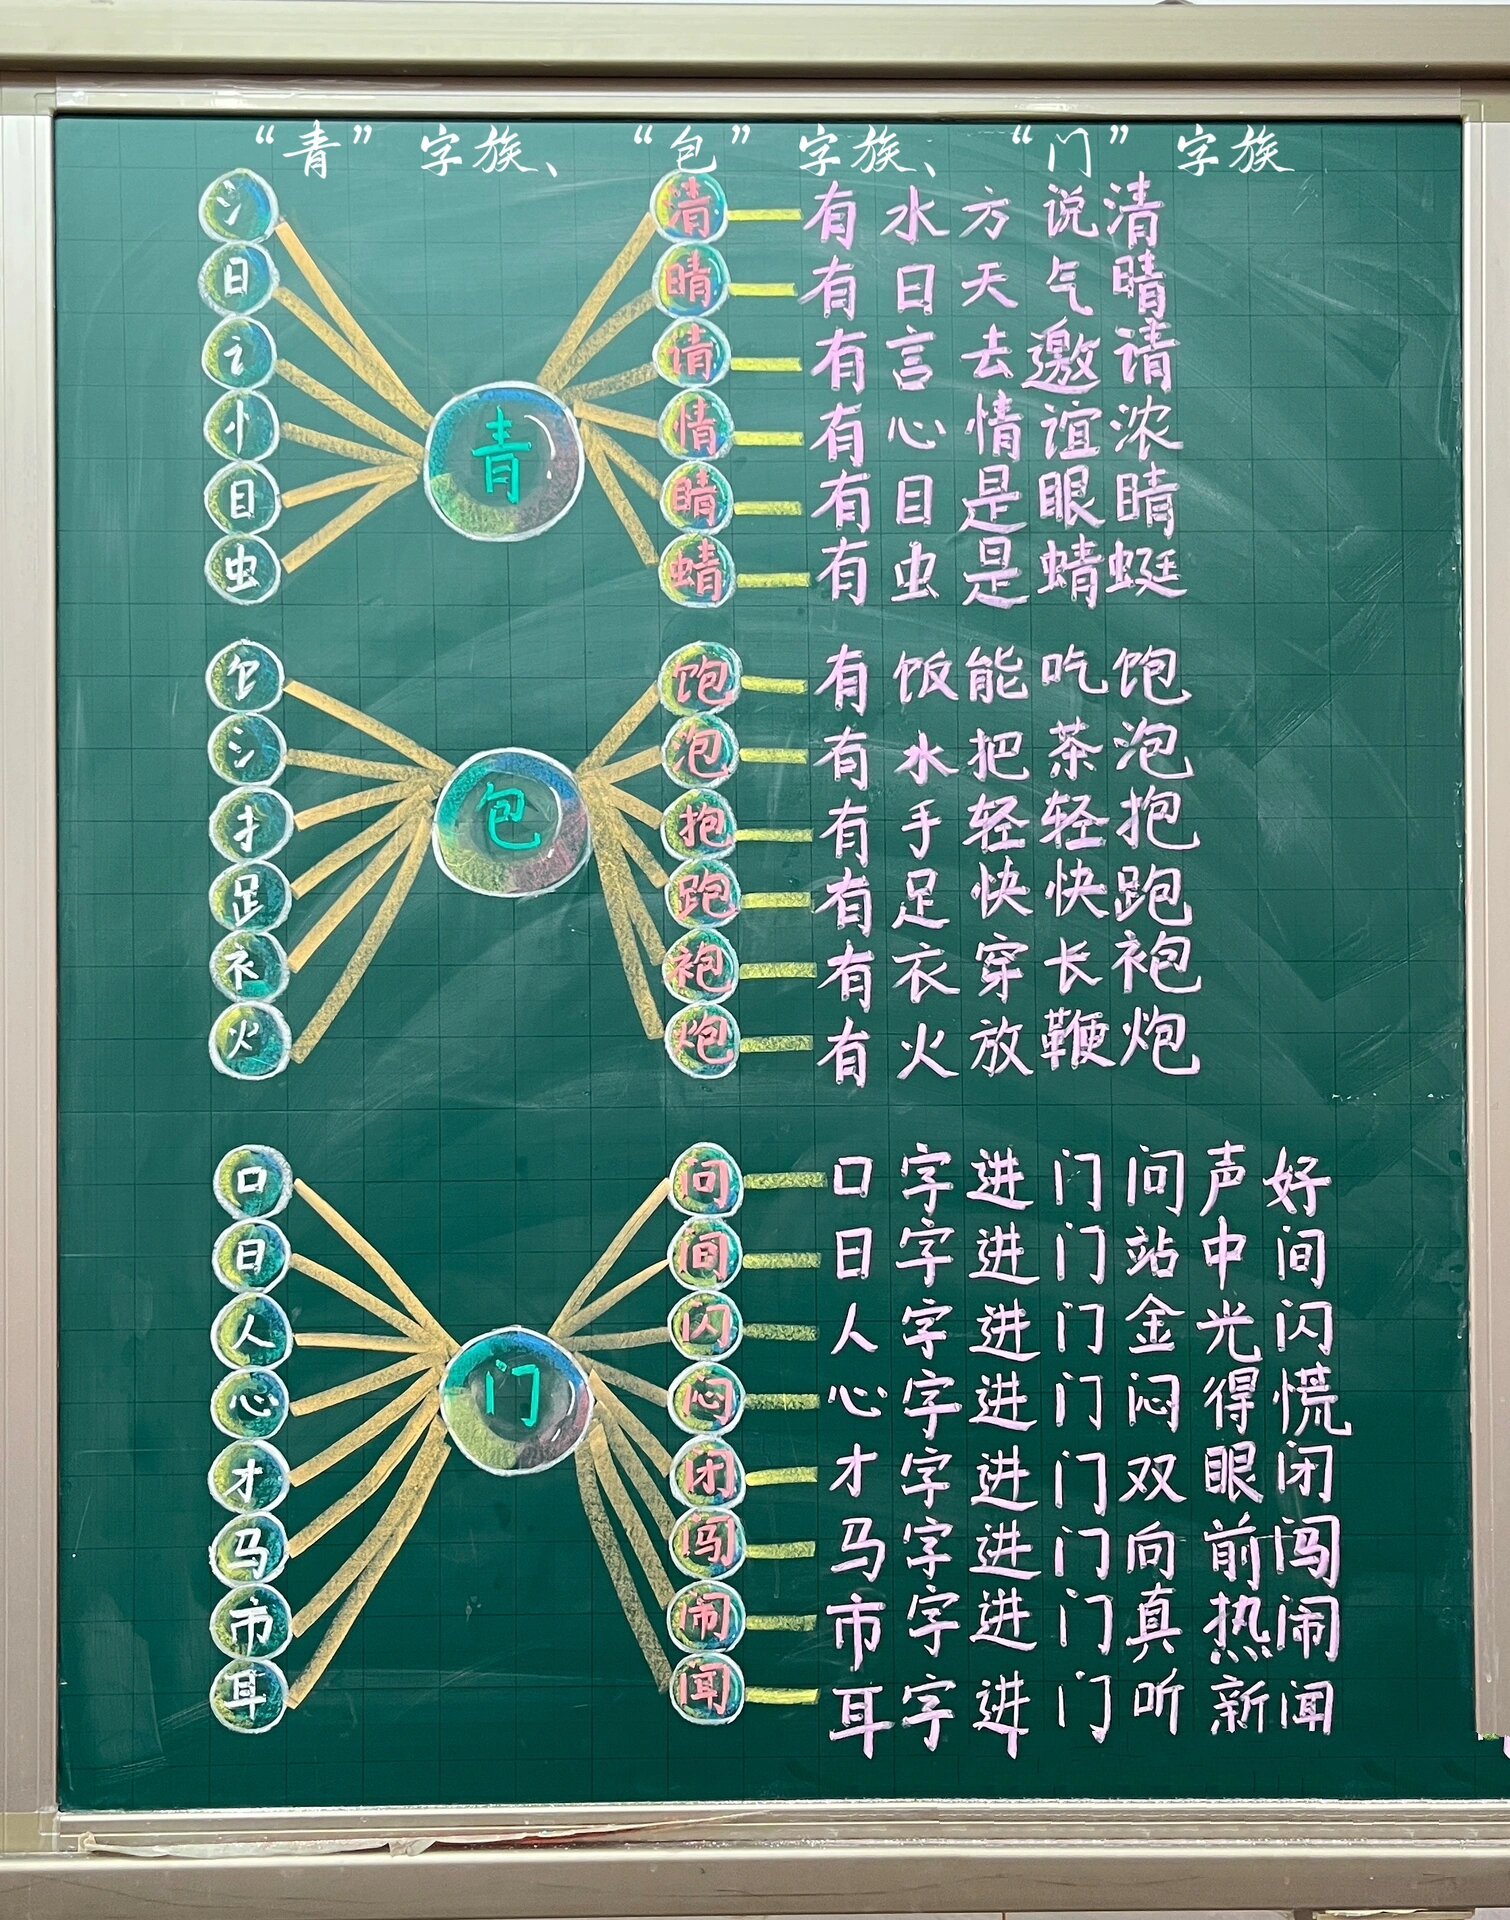 “青”字族、“包”字族、“门”字族
氵 清 有水方说清
日 晴 有日天气晴
讠 请 有言去邀请
忄 青 情 有心情谊浓
目 睛 有目是眼睛
虫 蜻 有虫是蜻蜓
饣 饱 有饭能吃饱
氵 泡 有水把茶泡
扌 包 抱 有手轻轻抱
𧾷 跑 有足快快跑
衤 袍 有衣穿长袍
火 炮 有火放鞭炮
口 问 口字进门问声好
日 间 日字进门站中间
人 闪 人字进门金光闪
心 门 闷 心字进门闷得慌
才 闭 才字进门双眼闭
马 闯 马字进门向前闯
市 闹 市字进门真热闹
耳 闻 耳字进门听新闻